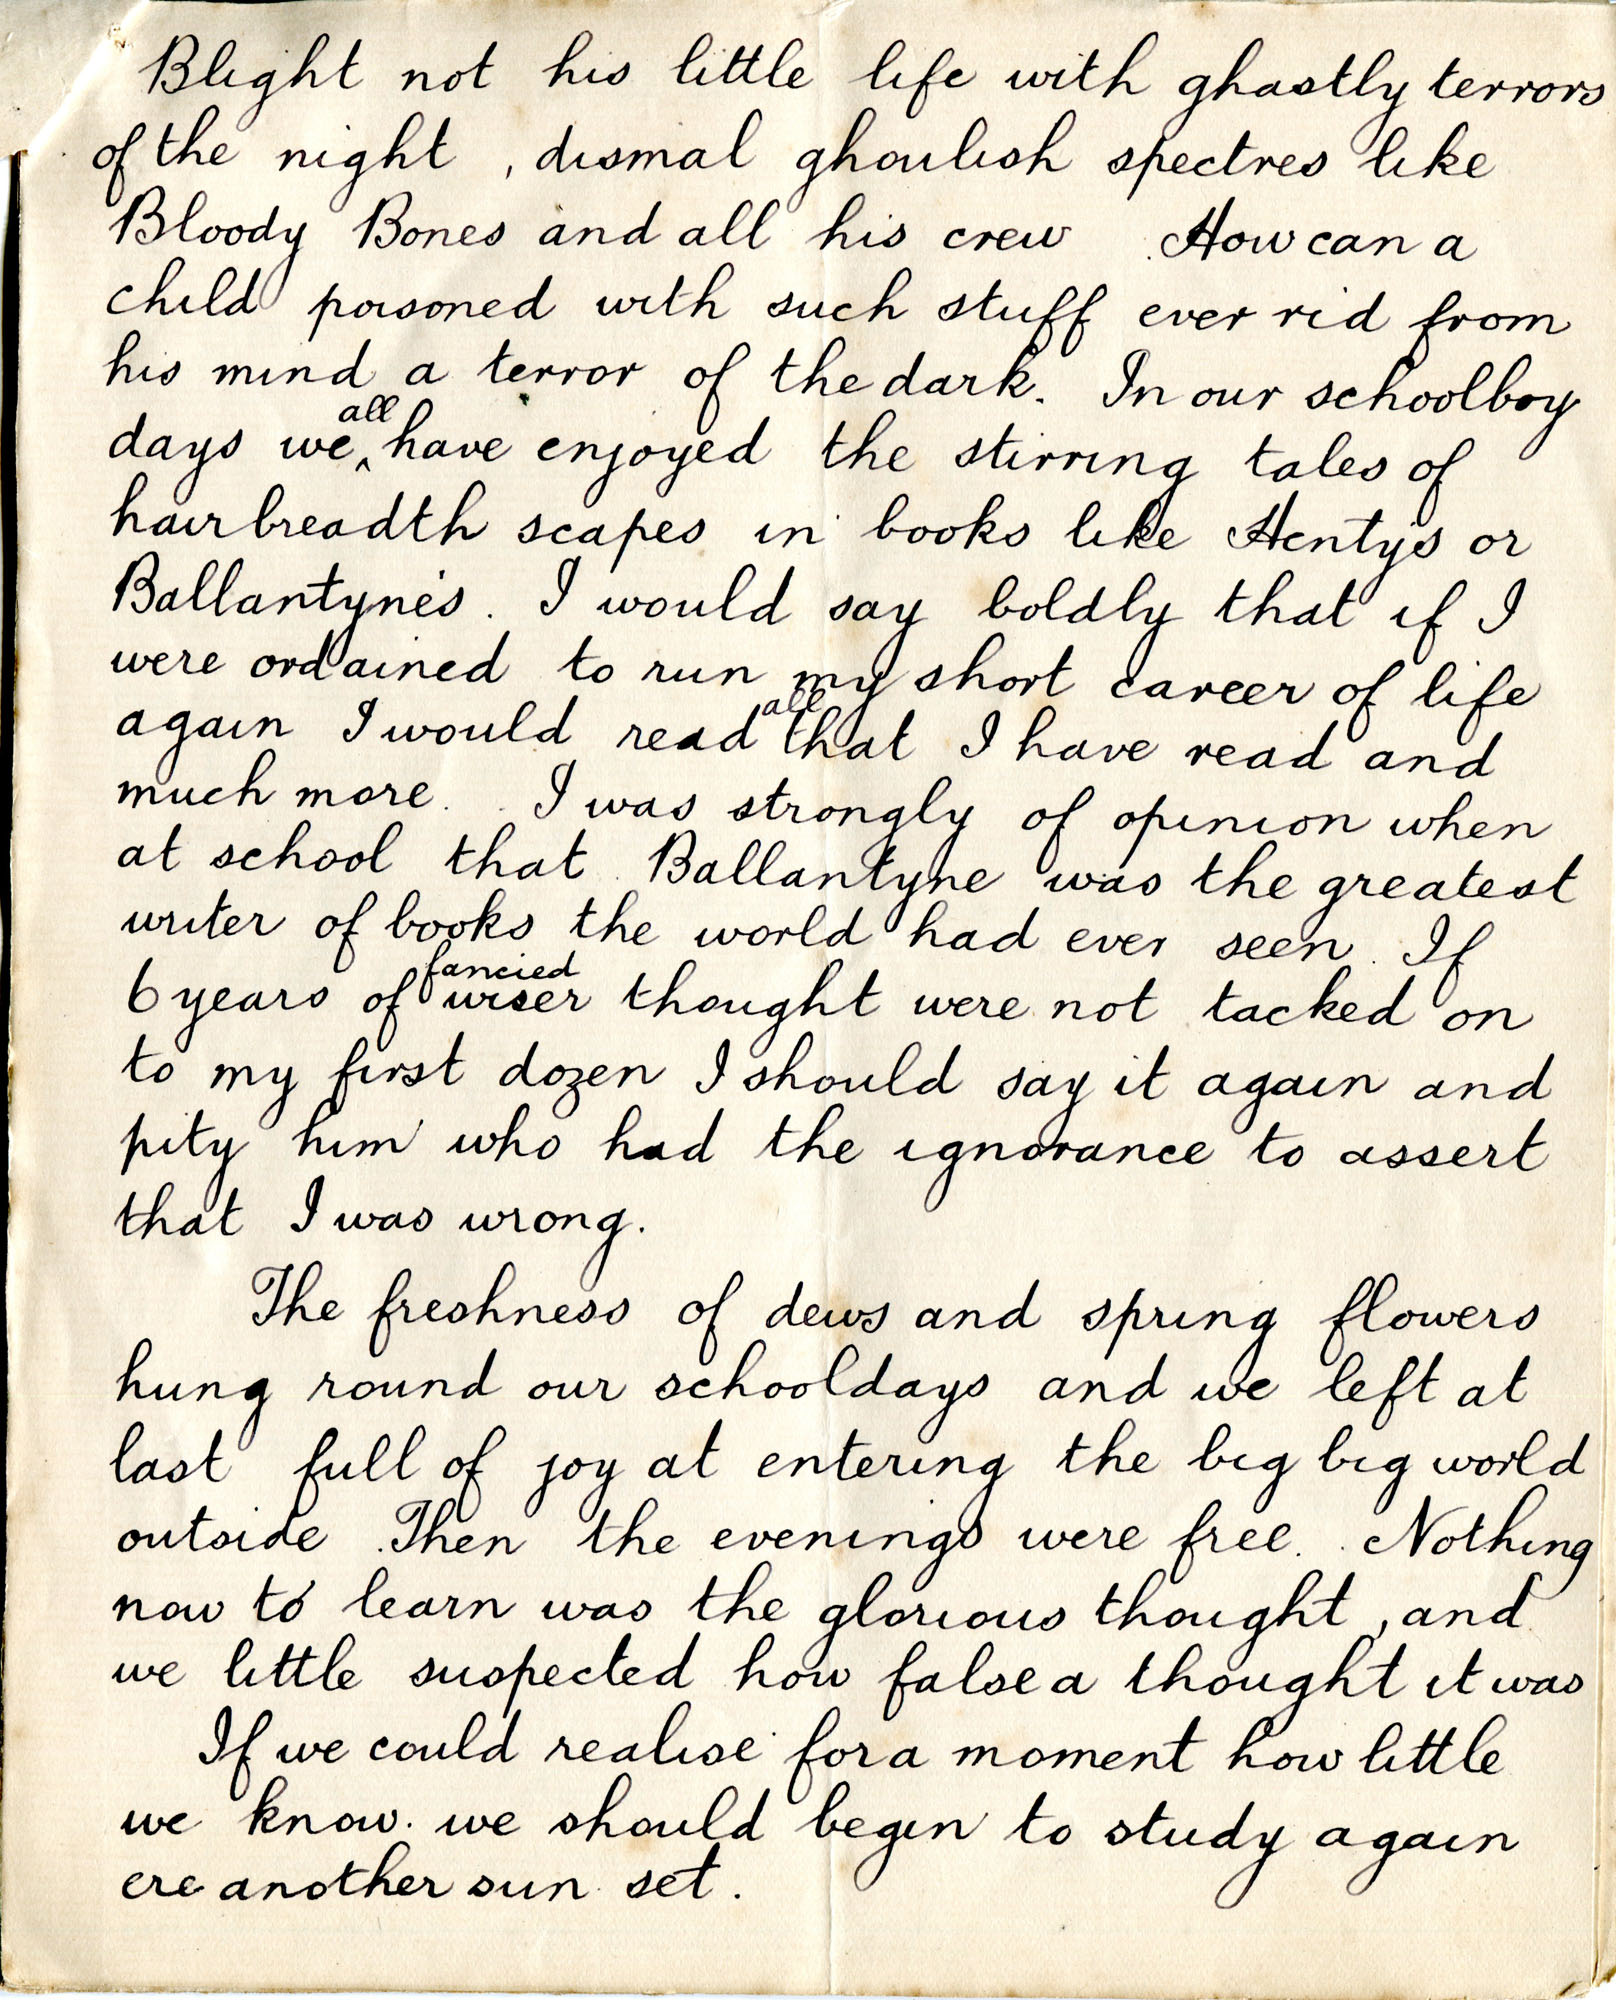 Blight not his little life with ghastly terrors
of the night , dismal ghoulish spectres like
Bloody Bones and all his crew . How can a
child poisoned with such stuff ever rid from
his mind a terror of the dark. In our schoolboy
all
days we ^ have enjoyed the stirring tales of
hairbreadth scapes in books like Henty's or
Ballantyne's. I would say boldly that if I
were ordained to run my short career of life
all
again I would read that I have read and
much more. I was strongly of opinion when
at school that Ballantyne was the greatest
writer of books the world had ever seen. If
fancied
6 years of wiser thought were not tacked on
to my first dozen I should say it again and
pity him who had the ignorance to assert
that I was wrong.
The freshness of dews and spring flowers
hung round our schooldays and we left at
last full of joy at entering the big big world
outside. Then the evenings were free. Nothing
now to learn was the glorious thought, and
we little suspected how false a thought it was
If we could realise for a moment how little
we know. we should begin to study again
ere another sun set.